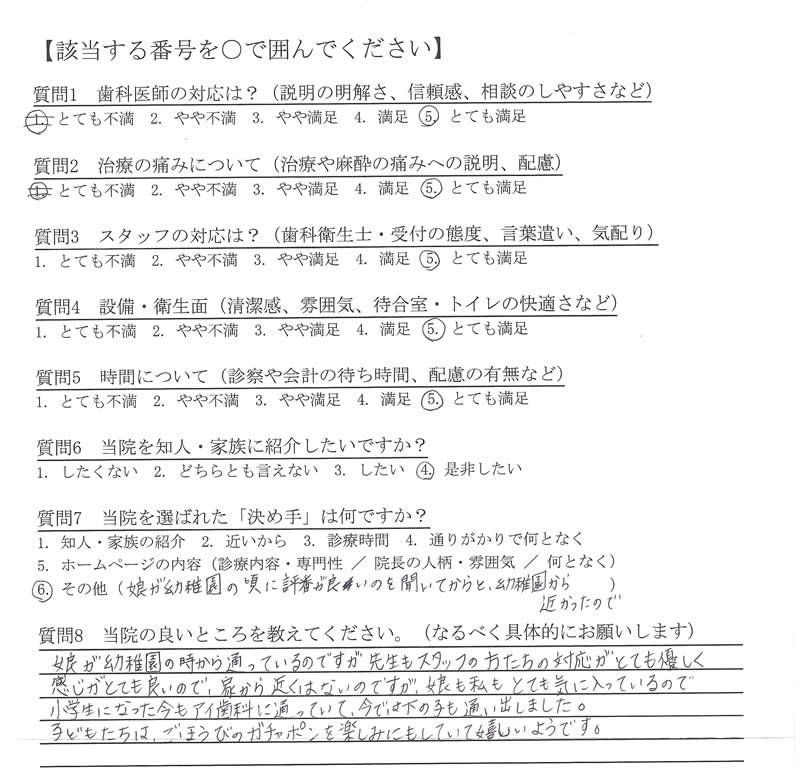 【該当する番号を○で囲んでください】
質問1　歯科医師の対応は？（説明の明解さ、信頼感、相談のしやすさなど）
1. とても不満　2. やや不満　3. やや満足　4. 満足　5. とても満足
質問2　治療の痛みについて（治療や麻酔の痛みへの説明、配慮）
1. とても不満　2. やや不満　3. やや満足　4. 満足　5. とても満足
質問3　スタッフの対応は？（歯科衛生士・受付の態度、言葉遣い、気配り）
1. とても不満　2. やや不満　3. やや満足　4. 満足　5. とても満足
質問4　設備・衛生面（清潔感、雰囲気、待合室・トイレの快適さなど）
1. とても不満　2. やや不満　3. やや満足　4. 満足　5. とても満足
質問5　時間について（診察や会計の待ち時間、配慮の有無など）
1. とても不満　2. やや不満　3. やや満足　4. 満足　5. とても満足
質問6　当院を知人・家族に紹介したいですか？
1. したくない　2. どちらとも言えない　3. したい　4. 是非したい
質問7　当院を選ばれた「決め手」は何ですか？
1. 知人・家族の紹介　2. 近いから　3. 診療時間　4. 通りがかりで何となく
5. ホームページの内容（診療内容・専門性 ／ 院長の人柄・雰囲気 ／ 何となく）
6. その他（娘が幼稚園の頃に評番が良いのを聞いてからと、幼稚園から　）
近かったので
質問8　当院の良いところを教えてください。（なるべく具体的にお願いします）
娘が幼稚園の時から通っているのですが先生もスタッフの方たちの対応がとても優しく
感じがとても良いので、家から近くはないのですが、娘も私もとても気に入っているので
小学生になった今もアイ歯科に通っていて、今では下の子も通い出しました。
子どもたちは、ごほうびのガチャポンを楽しみにもしていて嬉しいようです。